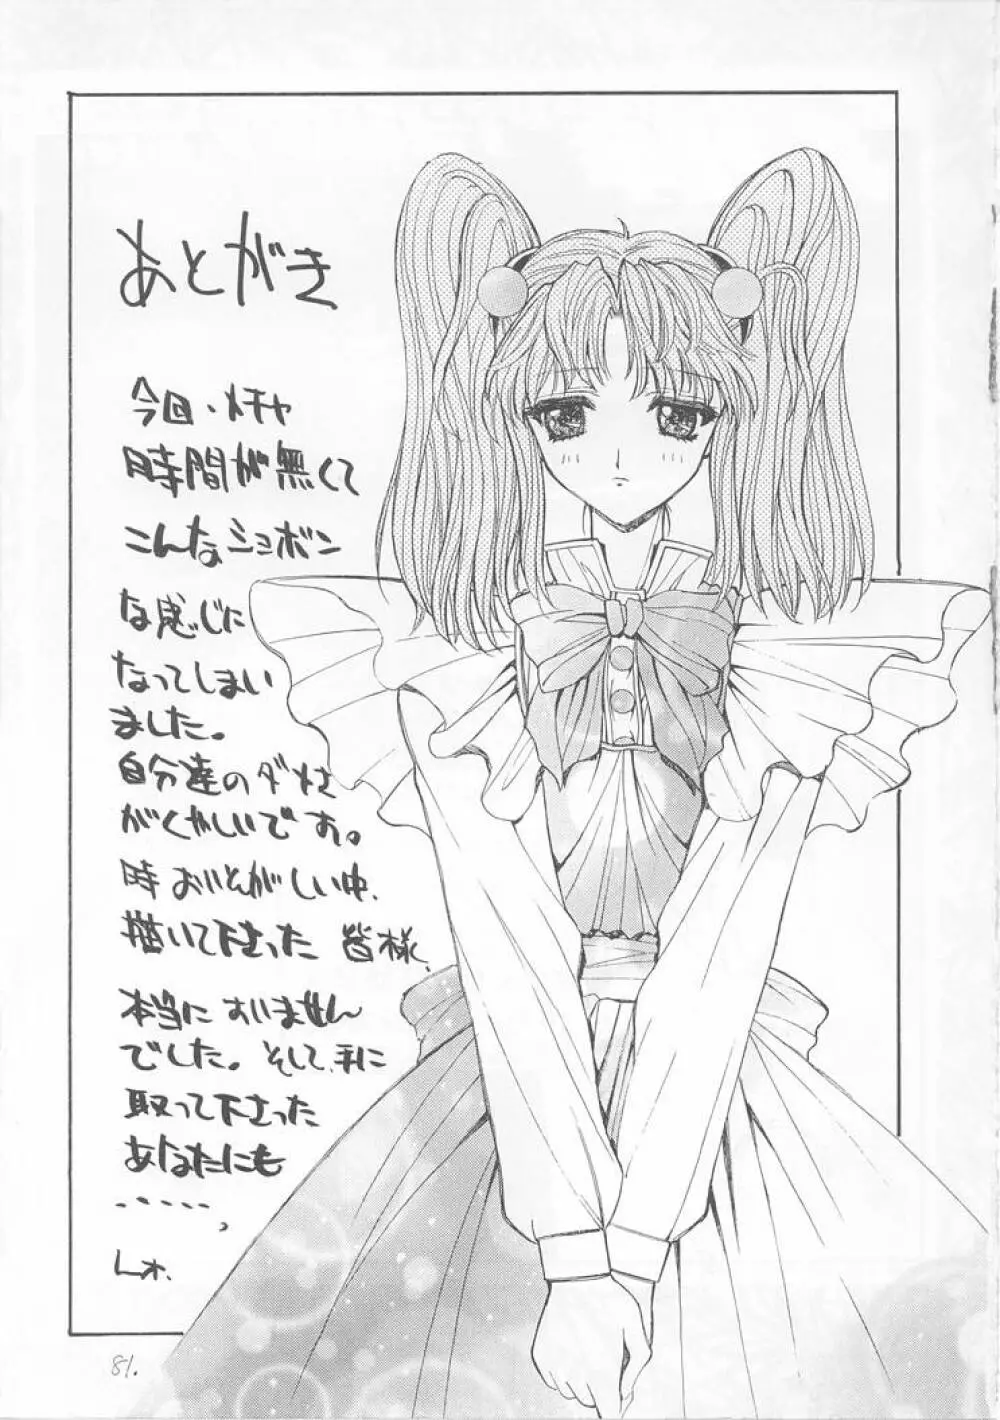 あとがき
今回・メチャ
時間が無くて
こんなショボン
な感じに
なってしまい
ました。
自分達のダメさ
がくやしいです。
時おいそがしい中、
描いて下さった皆様、
本当にすいません
でした。そして、手に
取って下さった
あなたにも
・・・・・、
81.